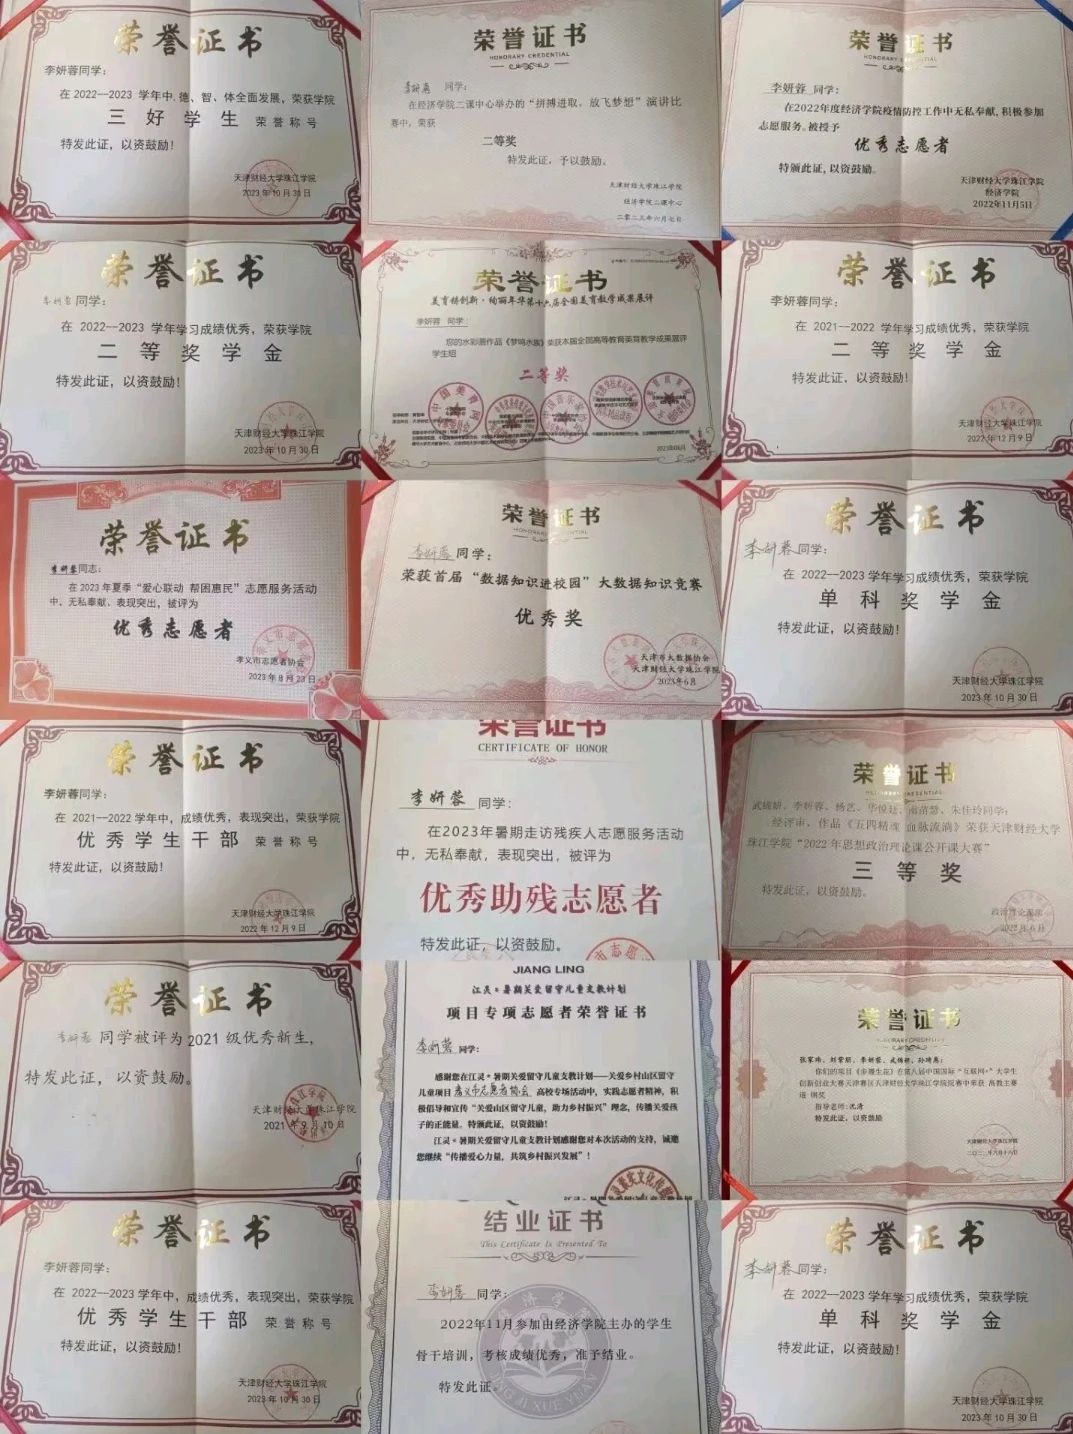 荣誉证书
李妍蓉同学：
在 2022—2023 学年中，德、智、体全面发展，荣获学院
三好学生 荣誉称号
特发此证，以资鼓励！
天津财经大学珠江学院
2023年10月30日
荣誉证书
HONORARY CREDENTIAL
同学：
在经济学院二课中心举办的“拼搏进取，放飞梦想”演讲比
赛中，荣获
二等奖
特发此证，予以鼓励。
天津财经大学珠江学院
经济学院二课中心
二零二三年六月七日
荣誉证书
HONORARY CREDENTIAL
李妍蓉 同学：
在2022年度经济学院疫情防控工作中无私奉献，积极参加
志愿服务。被授予
优秀志愿者
特颁此证，以资鼓励。
天津财经大学珠江学院
经济学院
2022年11月5日
荣誉证书
李妍蓉同学：
在 2022—2023 学年学习成绩优秀，荣获学院
二等奖学金
特发此证，以资鼓励！
天津财经大学珠江学院
2023年10月30日
荣誉证书
美育铸创新·绚丽年华第十六届全国美育教学成果展评
李妍蓉 同学：
您的水彩画作品《梦鸣水族》荣获本届全国高等教育美育教学成果展评
学生组
二等奖
2023年06月
荣誉证书
李妍蓉同学：
在 2021—2022 学年学习成绩优秀，荣获学院
二等奖学金
特发此证，以资鼓励！
天津财经大学珠江学院
2022年12月9日
荣誉证书
李妍蓉同志：
在2023年夏季“爱心联动 帮困惠民”志愿服务活动
中，无私奉献、表现突出，被评为
优秀志愿者
孝义市志愿者协会
2023年8月23日
荣誉证书
HONORARY CREDENTIAL
李妍蓉同学：
荣获首届“数据知识进校园”大数据知识竞赛
优秀奖
天津市大数据协会
天津财经大学珠江学院
2023年6月
荣誉证书
李妍蓉同学：
在 2022—2023 学年学习成绩优秀，荣获学院
单科奖学金
特发此证，以资鼓励！
天津财经大学珠江学院
2023年10月30日
荣誉证书
李妍蓉同学：
在 2021—2022 学年中，成绩优秀，表现突出，荣获学院
优秀学生干部 荣誉称号
特发此证，以资鼓励！
天津财经大学珠江学院
2022年12月9日
荣誉证书
CERTIFICATE OF HONOR
李妍蓉 同学：
在2023年暑期走访残疾人志愿服务活动
中，无私奉献，表现突出，被评为
优秀助残志愿者
特发此证，以资鼓励。
荣誉证书
李妍蓉、杨艺、朱佳玲同学：
经评审，作品《五四精魂 血脉流淌》荣获天津财经大学
珠江学院“2022年思想政治理论课公开课大赛”
三等奖
特发此证，以资鼓励。
2022年6月
荣誉证书
李妍蓉 同学被评为2021级优秀新生，
特发此证，以资鼓励。
天津财经大学珠江学院
2021年9月10日
JIANG LING
江灵·暑期关爱留守儿童支教计划
项目专项志愿者荣誉证书
李妍蓉 同学：
感谢您在江灵·暑期关爱留守儿童支教计划——关爱乡村山区留守
儿童项目孝义市志愿者协会 高校专场活动中，实践志愿者精神，积
极倡导和宣传“关爱山区留守儿童，助力乡村振兴”理念，传播关爱孩
子的正能量。特颁此证，以资鼓励！
江灵·暑期关爱留守儿童支教计划感谢您对本次活动的支持，诚邀
您继续“传播爱心力量，共筑乡村振兴发展”！
荣誉证书
李妍蓉、
你们的项目《步履生花》在第八届中国国际“互联网+”大学生
创新创业大赛天津赛区天津财经大学珠江学院竞赛中荣获 高教主赛
道 铜奖
指导老师：沈清
特发此证，以资鼓励
天津财经大学珠江学院
荣誉证书
李妍蓉同学：
在 2022—2023 学年中，成绩优秀，表现突出，荣获学院
优秀学生干部 荣誉称号
特发此证，以资鼓励！
天津财经大学珠江学院
2023年10月30日
结业证书
This Certificate Is Presented To
李妍蓉 同学：
2022年11月参加由经济学院主办的学生
骨干培训，考核成绩优秀，准予结业。
特发此证。
荣誉证书
李妍蓉同学：
在 2022—2023 学年学习成绩优秀，荣获学院
单科奖学金
特发此证，以资鼓励！
天津财经大学珠江学院
2023年10月30日